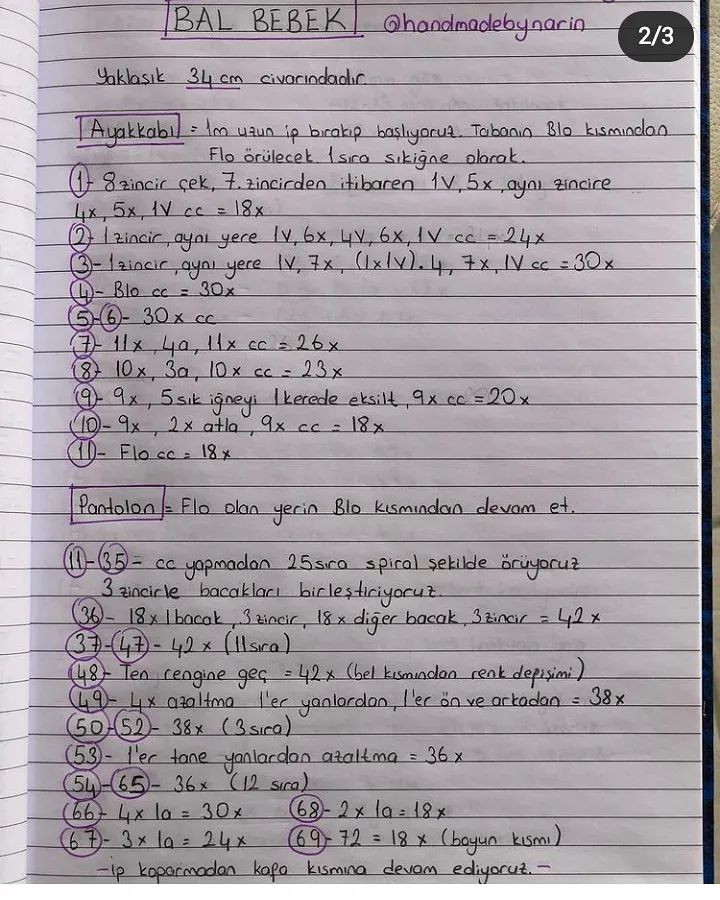 BAL BEBEK @handmadebynarin
2/3
Yaklaşık 34 cm civarındadır.
Ayakkabı = 1m uzun ip bırakıp başlıyoruz. Tabanın Blo kısmından
Flo örülecek. 1 sıra sıkiğne olarak.
1- 8 zincir çek, 7. zincirden itibaren 1V, 5x, aynı zincire
4x, 5x, 1V cc = 18x
2- 1 zincir, aynı yere 1V, 6x, 4V, 6x, 1V cc = 24x
3- 1 zincir, aynı yere 1V, 7x, (1x1V).4, 7x, 1V cc = 30x
4- Blo cc = 30x
5-6- 30x cc
7- 11x, 4a, 11x cc = 26x
8- 10x, 3a, 10x cc = 23x
9- 9x, 5 sık iğneyi 1 kerede eksilt, 9x cc = 20x
10- 9x, 2x atla, 9x cc = 18x
11- Flo cc = 18x
Pantolon = Flo olan yerin Blo kısmından devam et.
11-35 = cc yapmadan 25 sıra spiral şekilde örüyoruz
3 zincirle bacakları birleştiriyoruz.
36- 18x 1 bacak, 3 zincir, 18x diğer bacak, 3 zincir = 42x
37-47- 42x (11 sıra)
48- Ten rengine geç = 42x (bel kısmından renk depişimi)
49- 4x azaltma 1'er yanlardan, 1'er ön ve arkadan = 38x
50-52- 38x (3 sıra)
53- 1'er tane yanlardan azaltma = 36x
54-65- 36x (12 sıra)
66- 4x 1a = 30x 68- 2x 1a = 18x
67- 3x 1a = 24x 69- 72 = 18x (boyun kısmı)
- ip koparmadan kafa kısmına devam ediyoruz. -